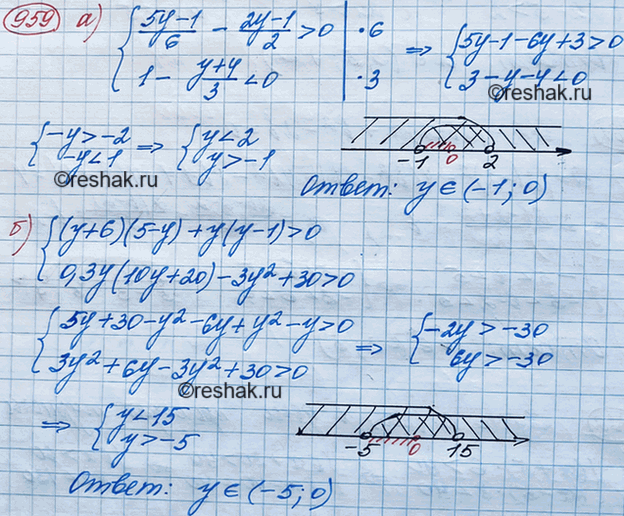 959 а) { (5y-1)/6 - (2y-1)/2 > 0 | ·6 ⇒ { 5y-1-6y+3>0
{ 1 - (y+4)/3 < 0 | ·3 { 3-y-4<0
©reshak.ru
{ -y>-2 ⇒ { y<2
{ -y<1 { y>-1
-1 0 2
©reshak.ru
Ответ: y∈(-1; 0)
б) { (y+6)(5-y)+y(y-1)>0
{ 0,3y(10y+20)-3y²+30>0
{ 5y+30-y²-6y+y²-y>0 ⇒ { -2y>-30
{ 3y²+6y-3y²+30>0 { 6y>-30
©reshak.ru
⇒ { y<15
{ y>-5
-5 0 15
Ответ: y∈(-5; 0)